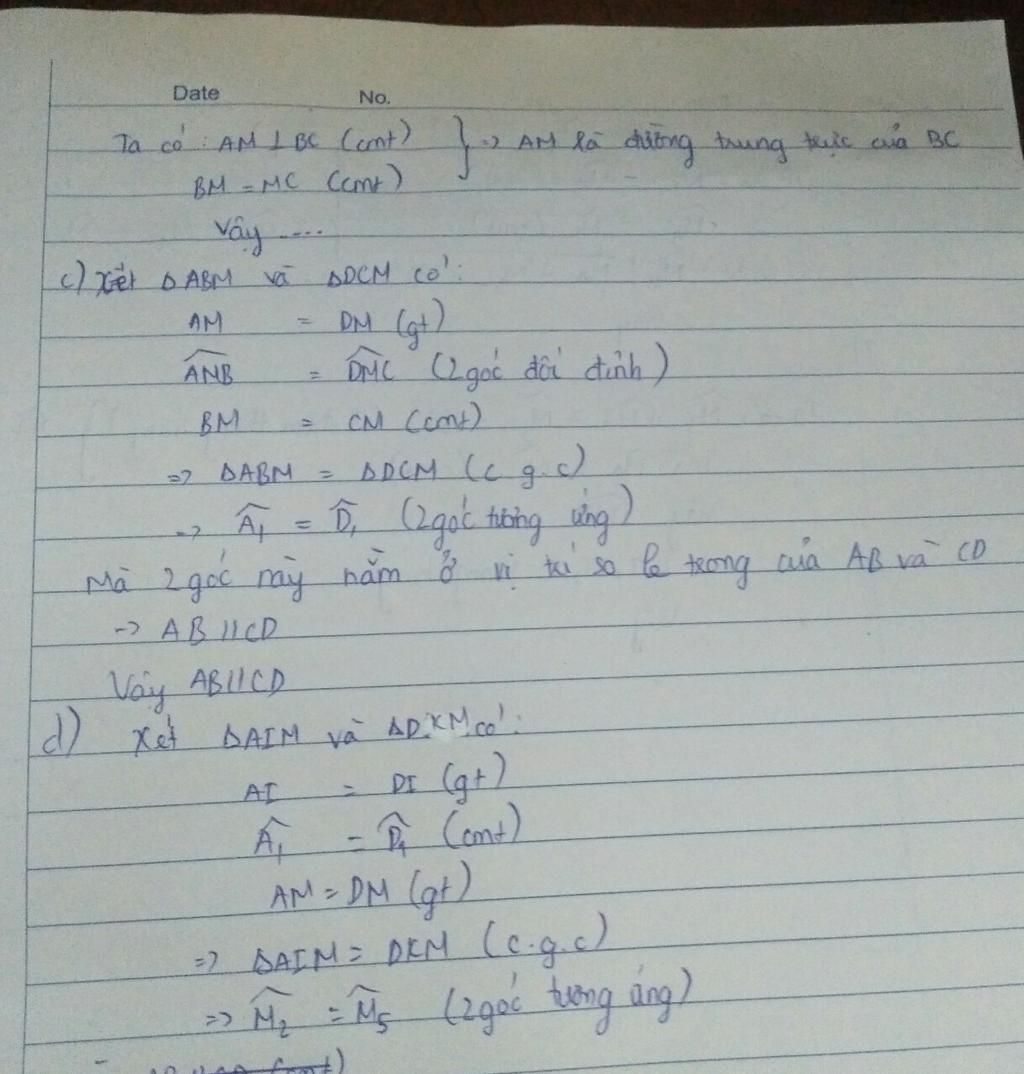 Date No.
Ta có : AM ⊥ BC (cmt) } => AM là đường trung trực của BC
BM = MC (cmt)
Vậy ....
c) Xét ΔABM và ΔDCM có :
AM = DM (gt)
ANB = DMC (2 góc đối đỉnh)
BM = CM (cmt)
=> ΔABM = ΔDCM (c g.c)
=> Â₁ = D̂₁ (2 góc tương ứng)
Mà 2 góc này nằm ở vị trí so le trong của AB và CD
-> AB // CD
Vậy AB // CD
d) Xét ΔAIM và ΔDKM có :
AI = DI (gt)
Â₁ = D̂₁ (cmt)
AM = DM (gt)
=> ΔAIM = DKM (c.g.c)
=> M̂₂ = M̂₅ (2 góc tương ứng)